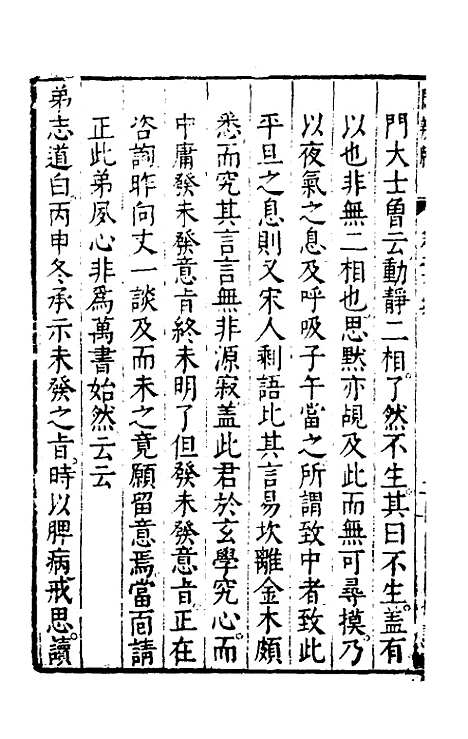 門大士曾云動靜二相了然不生其曰不生蓋有
以也非無二相也思黙亦覘及此而無可尋摸乃
以夜氣之息及呼吸子午當之所謂致中者致此
平旦之息則又宋人剩語比其言易坎離金木頗
悉而究其言言無非源寂盖此君於玄學究心而
中庸發未發意㫖終未明了但發未發意㫖正在
咨詢昨向丈一談及而未之竟願留意焉當面請
正此弟夙心非爲萬書始然云云
弟志道白丙申冬承示未發之㫖時以脾病戒思讀